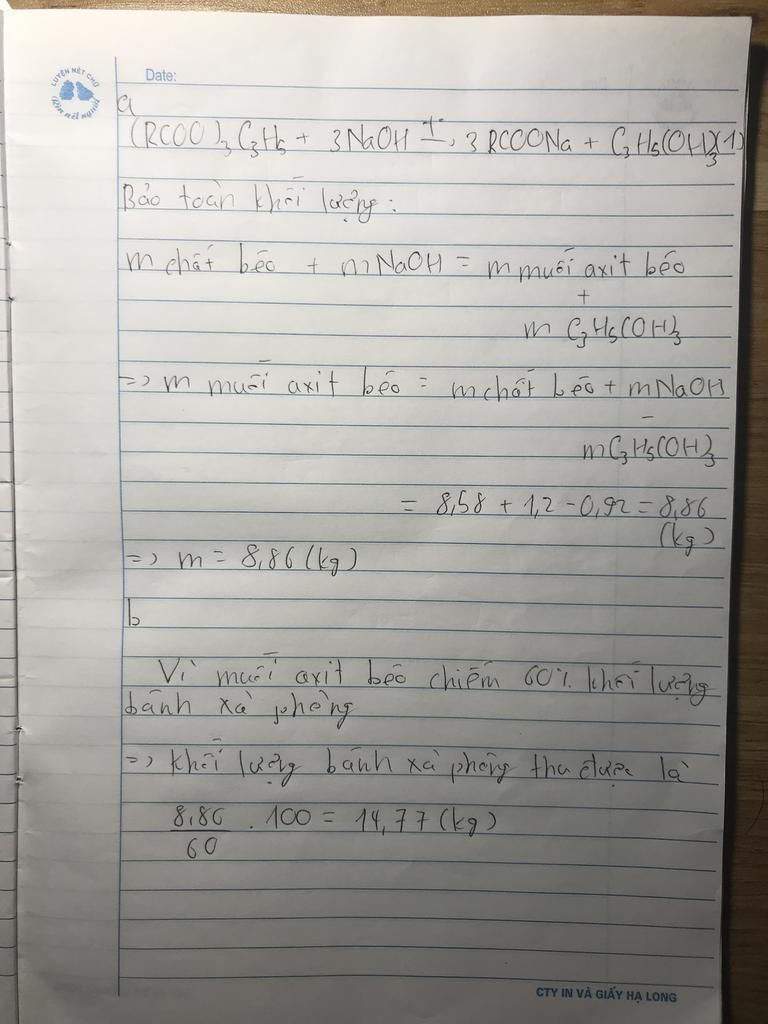 LUYỆN NÉT CHỮ
Rèn nết người
Date:
a
(RCOO)₃C₃H₅ + 3NaOH -t°-> 3RCOONa + C₃H₅(OH)₃(1)
Bảo toàn khối lượng:
m chất béo + mNaOH = m muối axit béo
+
m C₃H₅(OH)₃
=> m muối axit béo = m chất béo + mNaOH
-
mC₃H₅(OH)₃
= 8,58 + 1,2 - 0,92 = 8,86
(kg)
=> m = 8,86 (kg)
b
Vì muối axit béo chiếm 60% khối lượng
bánh xà phòng
=> Khối lượng bánh xà phòng thu được là
8,86/60 . 100 = 14,77 (kg)
CTY IN VÀ GIẤY HẠ LONG